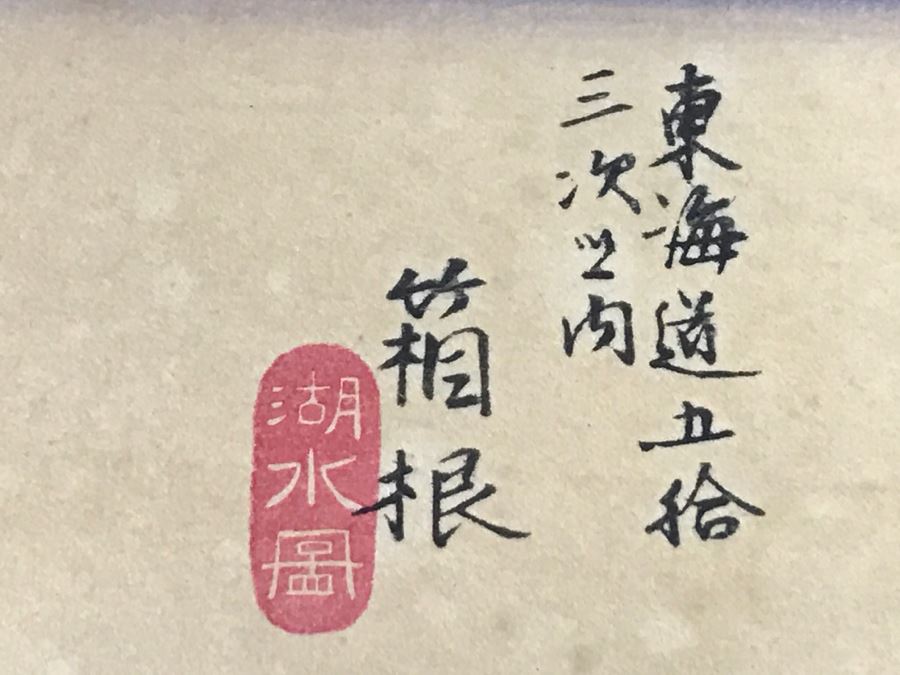 東海道五拾
三次之内
箱根
湖水圖